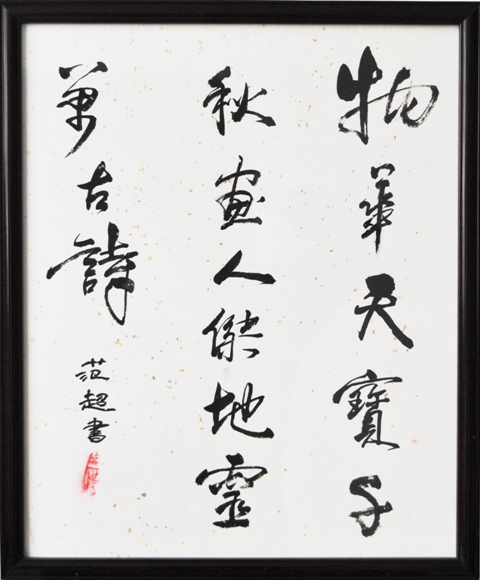 物華天寶千
秋畫人傑地靈
萬古詩
范超書